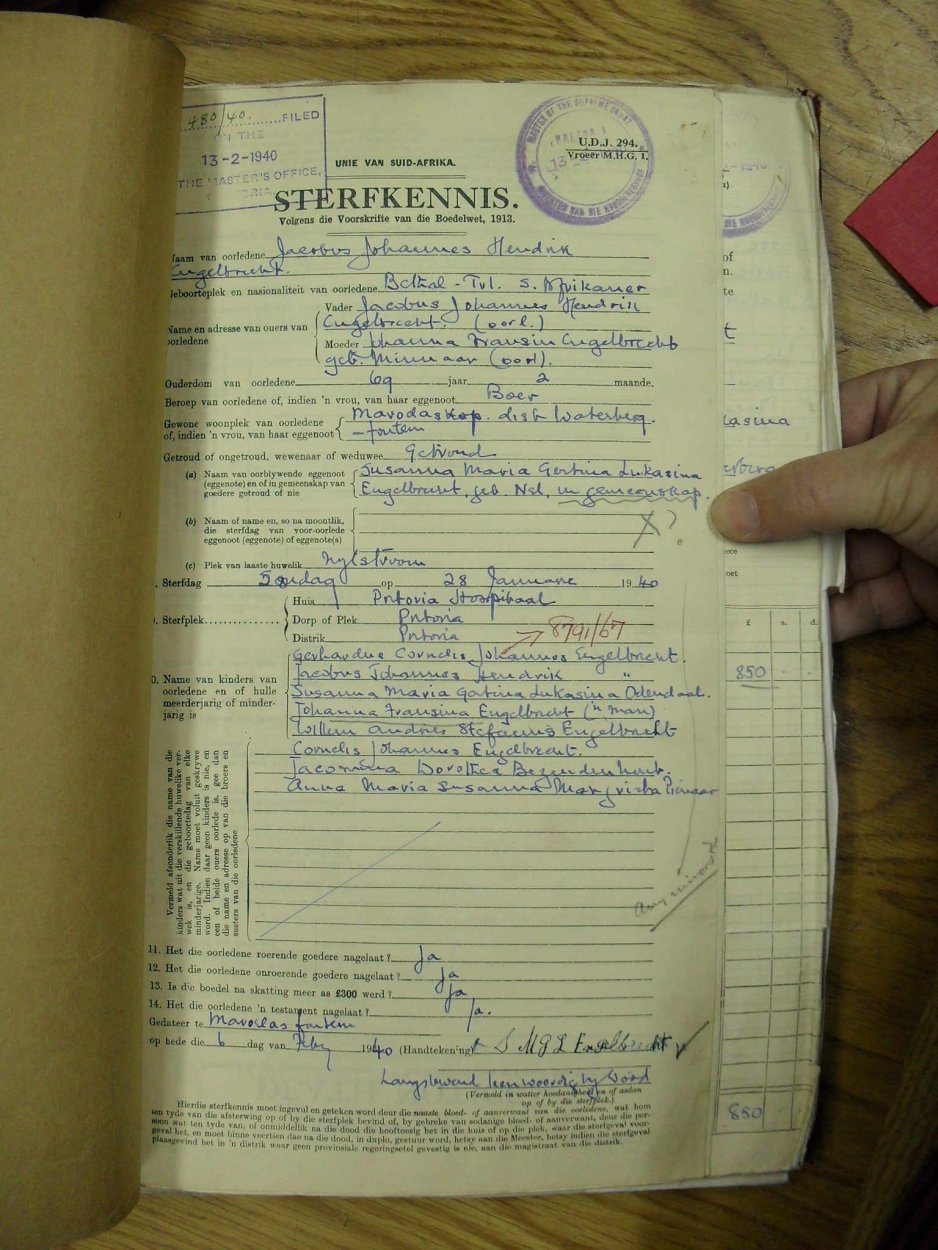 480/40. FILED
ON THE
13-2-1940
THE MASTER'S OFFICE,
MASTER OF THE SUPREME COURT
PRETORIA
13
U.D.J. 294.
Vroeër M.H.G. 1.
UNIE VAN SUID-AFRIKA.
STERFKENNIS.
Volgens die Voorskrifte van die Boedelwet, 1913.
Naam van oorledene Jacobus Johannes Hendrik
Engelbrecht.
Geboorteplek en nasionaliteit van oorledene Bethal - Tvl. S. Afrikaner
Name en adresse van ouers van oorledene
Vader Jacobus Johannes Hendrik
Engelbrecht. (oorl.)
Moeder Johanna Fransin Engelbrecht
geb. Minnaar (oorl).
Ouderdom van oorledene 69 jaar 2 maande.
Beroep van oorledene of, indien 'n vrou, van haar eggenoot Boer
Gewone woonplek van oorledene
of, indien 'n vrou, van haar eggenoot
dist Waterberg.
-fontein
Getroud of ongetroud, wewenaar of weduwee Getroud
(a) Naam van oorblywende eggenoot
(eggenote) en of in gemeenskap van
goedere getroud of nie
Susanna Maria Gertina Lukasina
Engelbrecht, geb. Nel, in gemeenskap.
(b) Naam of name en, so na moontlik,
die sterfdag van voor-oorlede
eggenoot (eggenote) of eggenote(s)
X?
(c) Plek van laaste huwelik Nylstroom
. Sterfdag Sondag op 28 Januarie 1940
. Sterfplek
Huis Pretoria Hospitaal
Dorp of Plek Pretoria
Distrik Pretoria
8791/67
0. Name van kinders van
oorledene en of hulle
meerderjarig of minder-
jarig is
Gerhardus Cornelis Johannes Engelbrecht.
Jacobus Johannes Hendrik "
Susanna Maria Gertina Lukasina Odendaal.
Johanna Fransina Engelbrecht ('n man)
Willem Andries Stefanus Engelbrecht
Cornelis Johannes Engelbrecht.
Jacomina Dorothea Bezuidenhout.
Anna Maria Susanna Margrieta Pienaar
Vermeld afsonderlik die name van die
kinders wat uit die verskillende huwelike ver-
wek is, en die geboortedag van elke
minderjarige. Name moet voluit geskrywe
word. Indien daar geen kinders is nie, en
een of beide ouers oorlede is, gee dan
die name en adresse op van die broers en
susters van die oorledene
Any minors?
11. Het die oorledene roerende goedere nagelaat? Ja
12. Het die oorledene onroerende goedere nagelaat? Ja
13. Is die boedel na skatting meer as £300 werd? Ja
14. Het die oorledene 'n testament nagelaat? Ja.
Gedateer te Marodasfontein
op hede die 6 dag van Feby 1940 (Handtekening) S M G L Engelbrecht
Langslewend teenwoordig by dood
(Vermeld in watter hoedanigheid en of aldan
op of by die sterfplek.)
Hierdie sterfkennis moet ingevul en geteken word deur die naaste bloed- of aanverwant van die oorledene, wat hom
ten tyde van die afsterwing op of by die sterfplek bevind of, by gebreke van sodanige bloed- of aanverwant, deur die per-
soon wat ten tyde van, of onmiddelik na die dood die hooftoesig het in die huis of op die plek, waar die sterfgeval voor-
geval het, en moet binne veertien dae na die dood, in duplo, gestuur word, hetsy aan die Meester, hetsy indien die sterfgeval
plaasgevind het in 'n distrik waar geen provinsiale regeringsetel gevestig is nie, aan die magistraat van die distrik.
£ s. d.
850
850